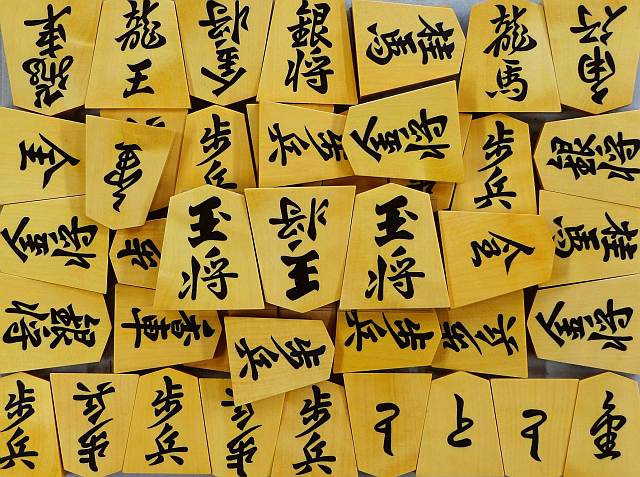 飛車
龍王
金将
銀将
桂馬
龍馬
角行
馬
歩兵
歩兵
金将
歩兵
銀将
金将
歩
玉将
王将
玉将
桂馬
銀将
香車
歩兵
歩兵
歩兵
金将
歩兵
歩兵
歩兵
歩兵
歩兵
と
と
と